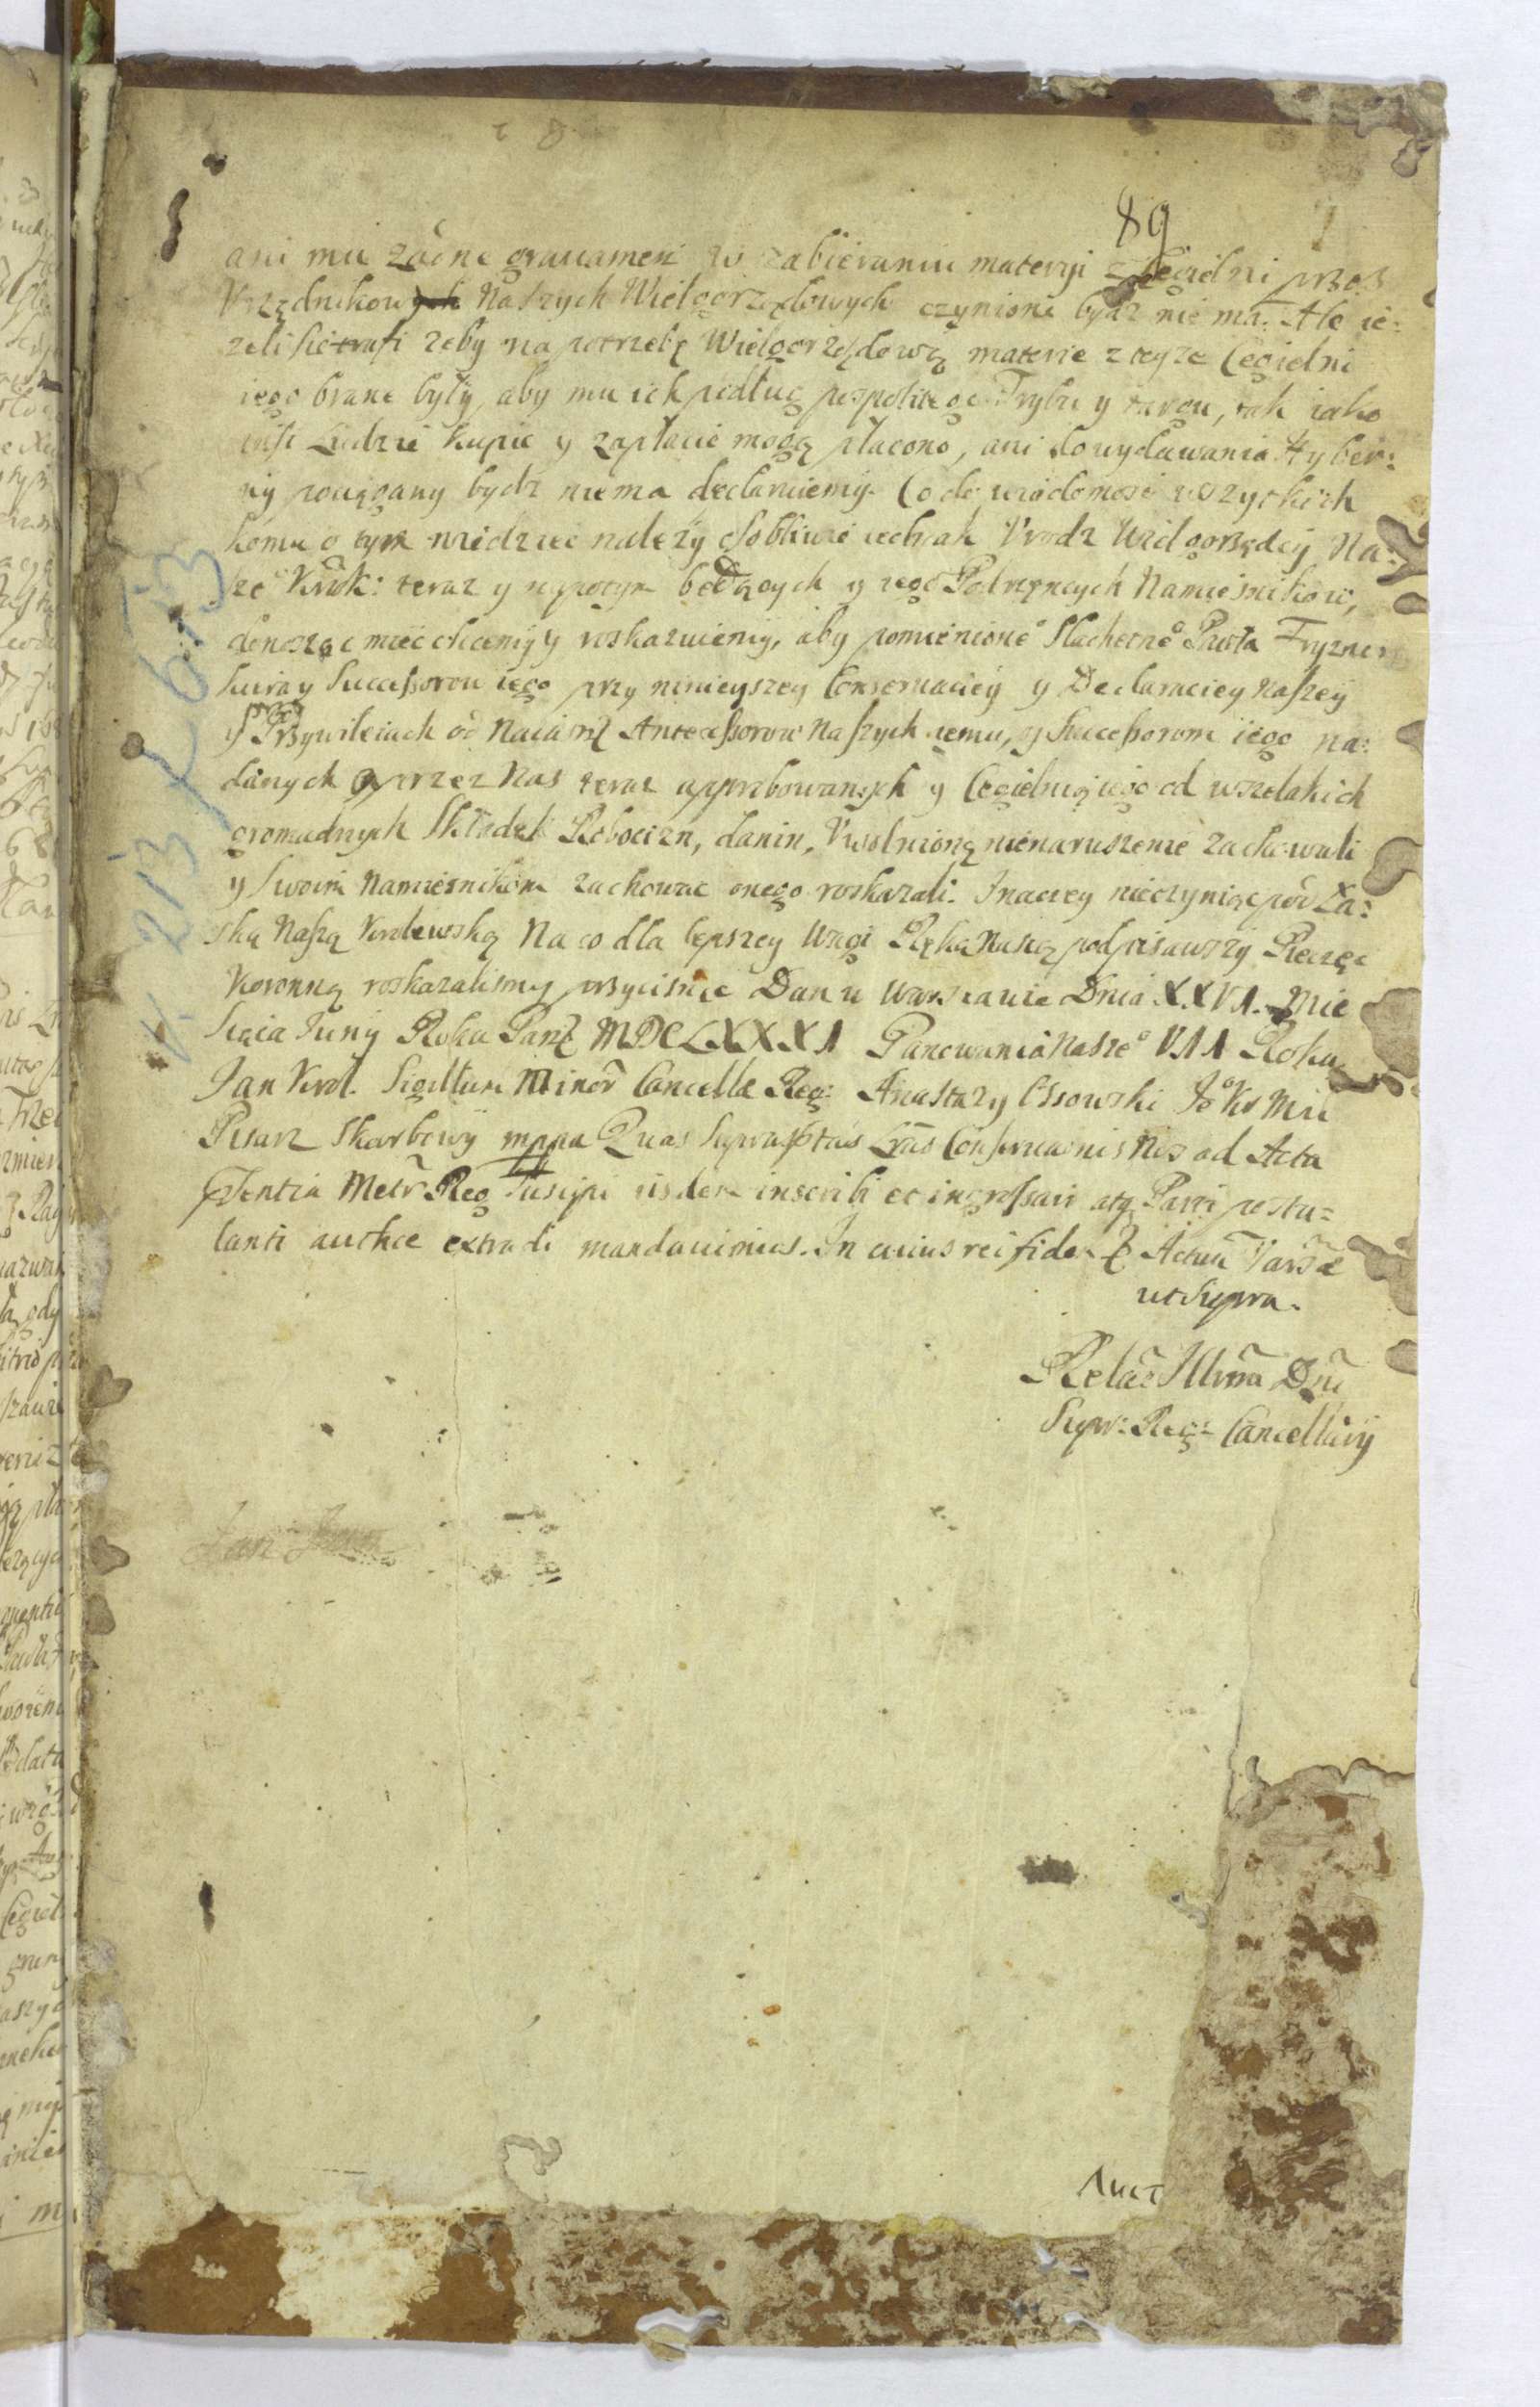 89
ani mu żadne grauamen w zabieraniu materyi z Cegielni przez
Vrzędnikow Naszych Wielgorządowych czynione bydz nie ma. Ale ie:
zeli sie trafi zeby na potrzebę Wielgorządową materie z teyze Cegielni
iego brane były, aby mu ich podług pospolitego Trybu y targu, tak iako
inśi Ludzie kupic y zapłacic mogą płacono, ani do wydawania Hyber:
ny pociągany bydz niema declaruiemy. Co do wiadomosci wszytkich
komu o tym wiedziec nalezy osobliwie iednak Vrodz Wielgorządcy Na:
sze° Krak: teraz y napotym będących y iego Podręcznych Namiesnikow,
donosząc miec chcemy y roskazuiemy, aby pomienione° Slachetne° Pawła Fryzner
Successorow iego przy ninieyszey Conseruaciey y Declaraciey naszey
y Przywileiach od Naiasń Antecessorow Naszych iemu, y Successorom iego na:
danych y przez Nas teraz approbowanych y Cegielnią iego od wszelakich
gromadnych Składek Robocizn, danin, Vwolnioną nienaruszenie zachowali
y Swoim Namiesnikom zachowac onego roskazali. Inaczey nieczyniąc pod Ła:
ską Naszą Krolewską Na co dla lepszey Wagi Ręką Naszą podpisawszy Pieczęc
Koronną roskazalismy przycisnąc Dan w Warszawie Dnia XXVI. Mie
siąca Juny Roku Pań MDCLXXXI Panowania Nasze° VII Roku
Jan Krol. Sigillum Minor Cancellæ Reg: Anastazy Ossowski Je° Kr Mci
Pisarz Skarbowy mppa Quas Suprasptas Lras Conseruaonis Nos ad Acta
pntia Metr Reg Suscipi iisdem inscribi et ingrossari atq Parti postu=
lanti authce extradi mandauimus. In cuius rei fidem Actum Varsæ
ut Supra.
Relao Illmi Dni
Supr: Reg: Cancellarij
Лист